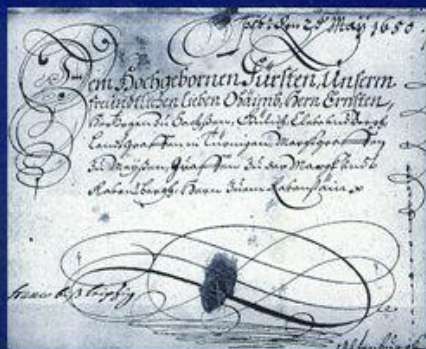 den 28 May 1650.
Dem Hochgebornen Fürsten, Unserm
freundtlichen lieben Ohaymb, Hern Ernsten,
Herzogen zu Sachßen, Gülich, Cleve und Bergk,
Landtgraffen in Türingen, Marckgraffen
zu Meyßen, Graffen zu der Marck und
Ravensbergk, Hern zu Ravenstain
franco biß Leipzig
Altenburgk